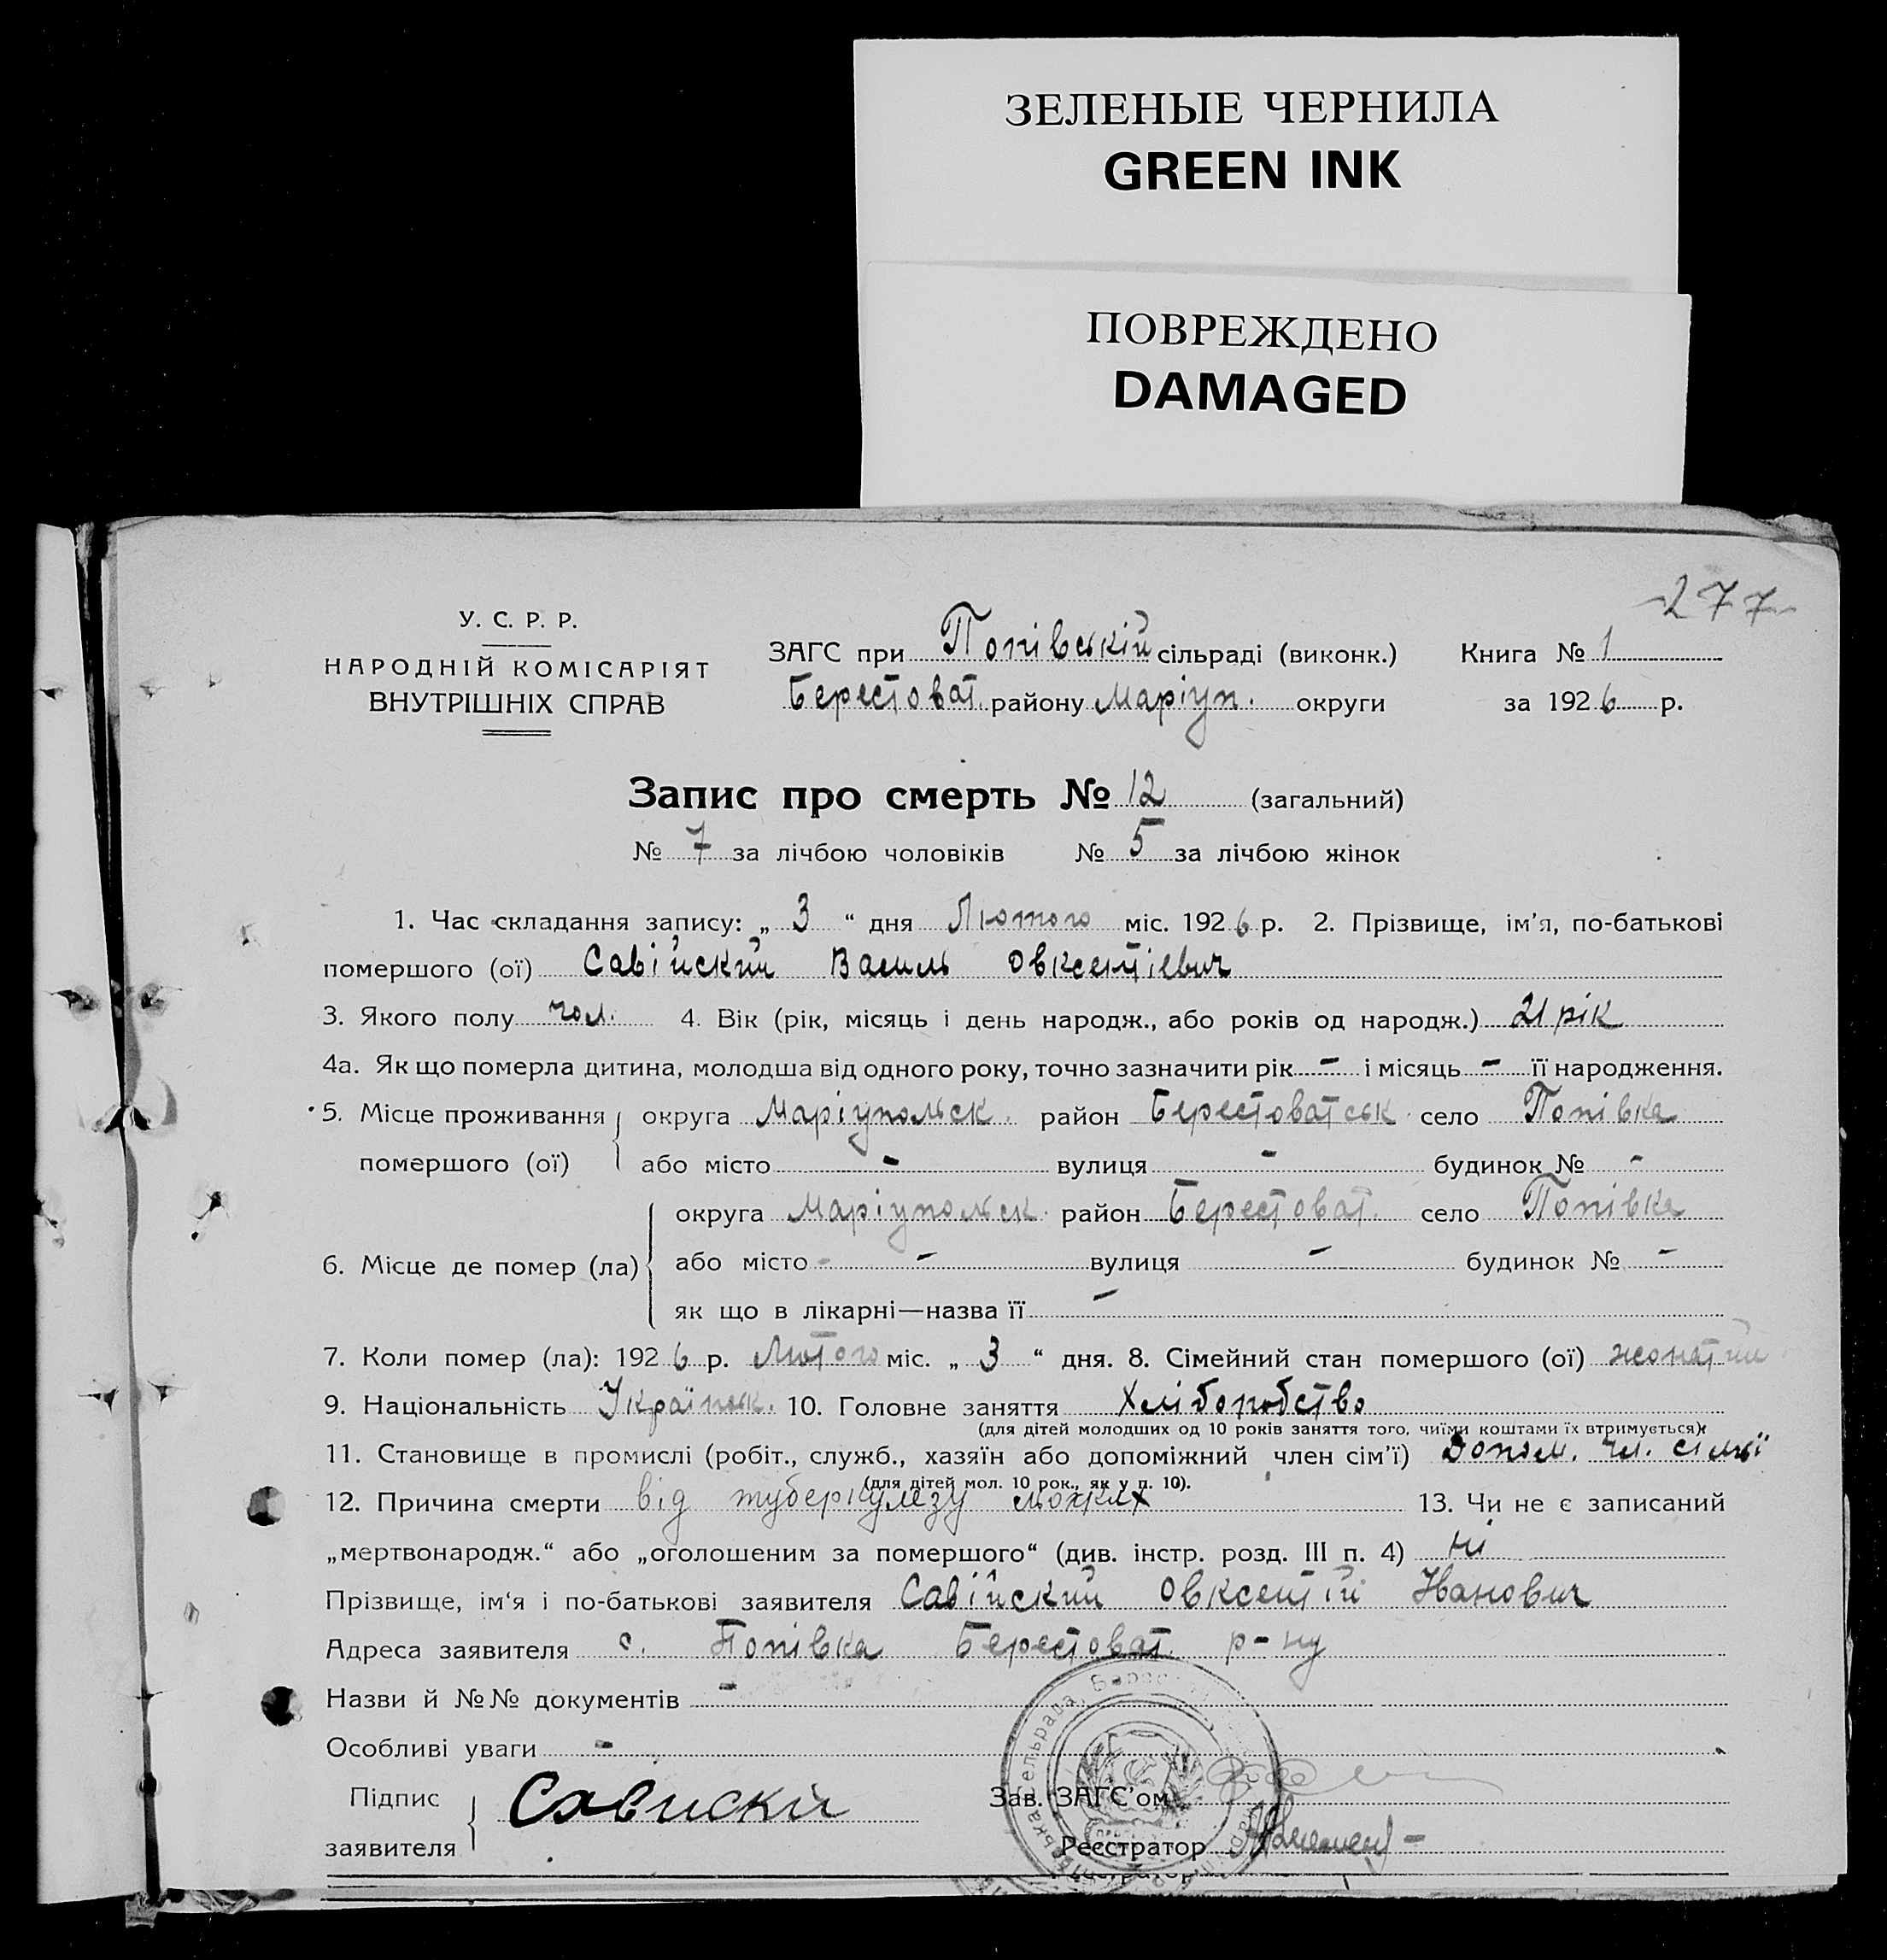 ЗЕЛЕНЫЕ ЧЕРНИЛА
GREEN INK
ПОВРЕЖДЕНО
DAMAGED
277
У. С. Р. Р.
НАРОДНІЙ КОМІСАРІЯТ
ВНУТРІШНІХ СПРАВ
ЗАГС при Попівській сільраді (виконк.) Книга № 1
Берестоват. району Маріуп. округи за 1926 р.
Запис про смерть № 12 (загальний)
№ 7 за лічбою чоловіків № 5 за лічбою жінок
1. Час складання запису: „ 3 “ дня Лютого міс. 1926 р. 2. Прізвище, ім’я, по-батькові
помершого (ої) Савійский Василь Овксентіевич
3. Якого полу чол. 4. Вік (рік, місяць і день народж., або років од народж.) 21 рік
4а. Як що померла дитина, молодша від одного року, точно зазначити рік - і місяць - її народження.
5. Місце проживання округа Маріупольск. район Берестоватськ. село Попівка
помершого (ої) або місто - вулиця - будинок № -
округа Маріупольск. район Берестоват. село Попівка
6. Місце де помер (ла) або місто - вулиця - будинок № -
як що в лікарні—назва її -
7. Коли помер (ла): 1926 р. Лютого міс. „ 3 “ дня. 8. Сімейний стан помершого (ої) жонатий
9. Національність Українськ. 10. Головне заняття Хліборобство
(для дітей молодших од 10 років заняття того, чиїми коштами їх втримується)
11. Становище в промислі (робіт., служб., хазяїн або допоміжний член сім’ї) Допом. чл. сімьї
(для дітей мол. 10 рок., як у п. 10).
12. Причина смерти від туберкулезу 13. Чи не є записаний
„мертвонародж.“ або „оголошеним за помершого“ (див. інстр. розд. III п. 4) ні
Прізвище, ім‘я і по-батькові заявителя Савійский Овксентій Іванович
Адреса заявителя с. Попівка Берестоват. р-ну
Назви й №№ документів -
Особливі уваги -
Підпис
заявителя Савискій
Зав. ЗАГС’ом
Реєстратор